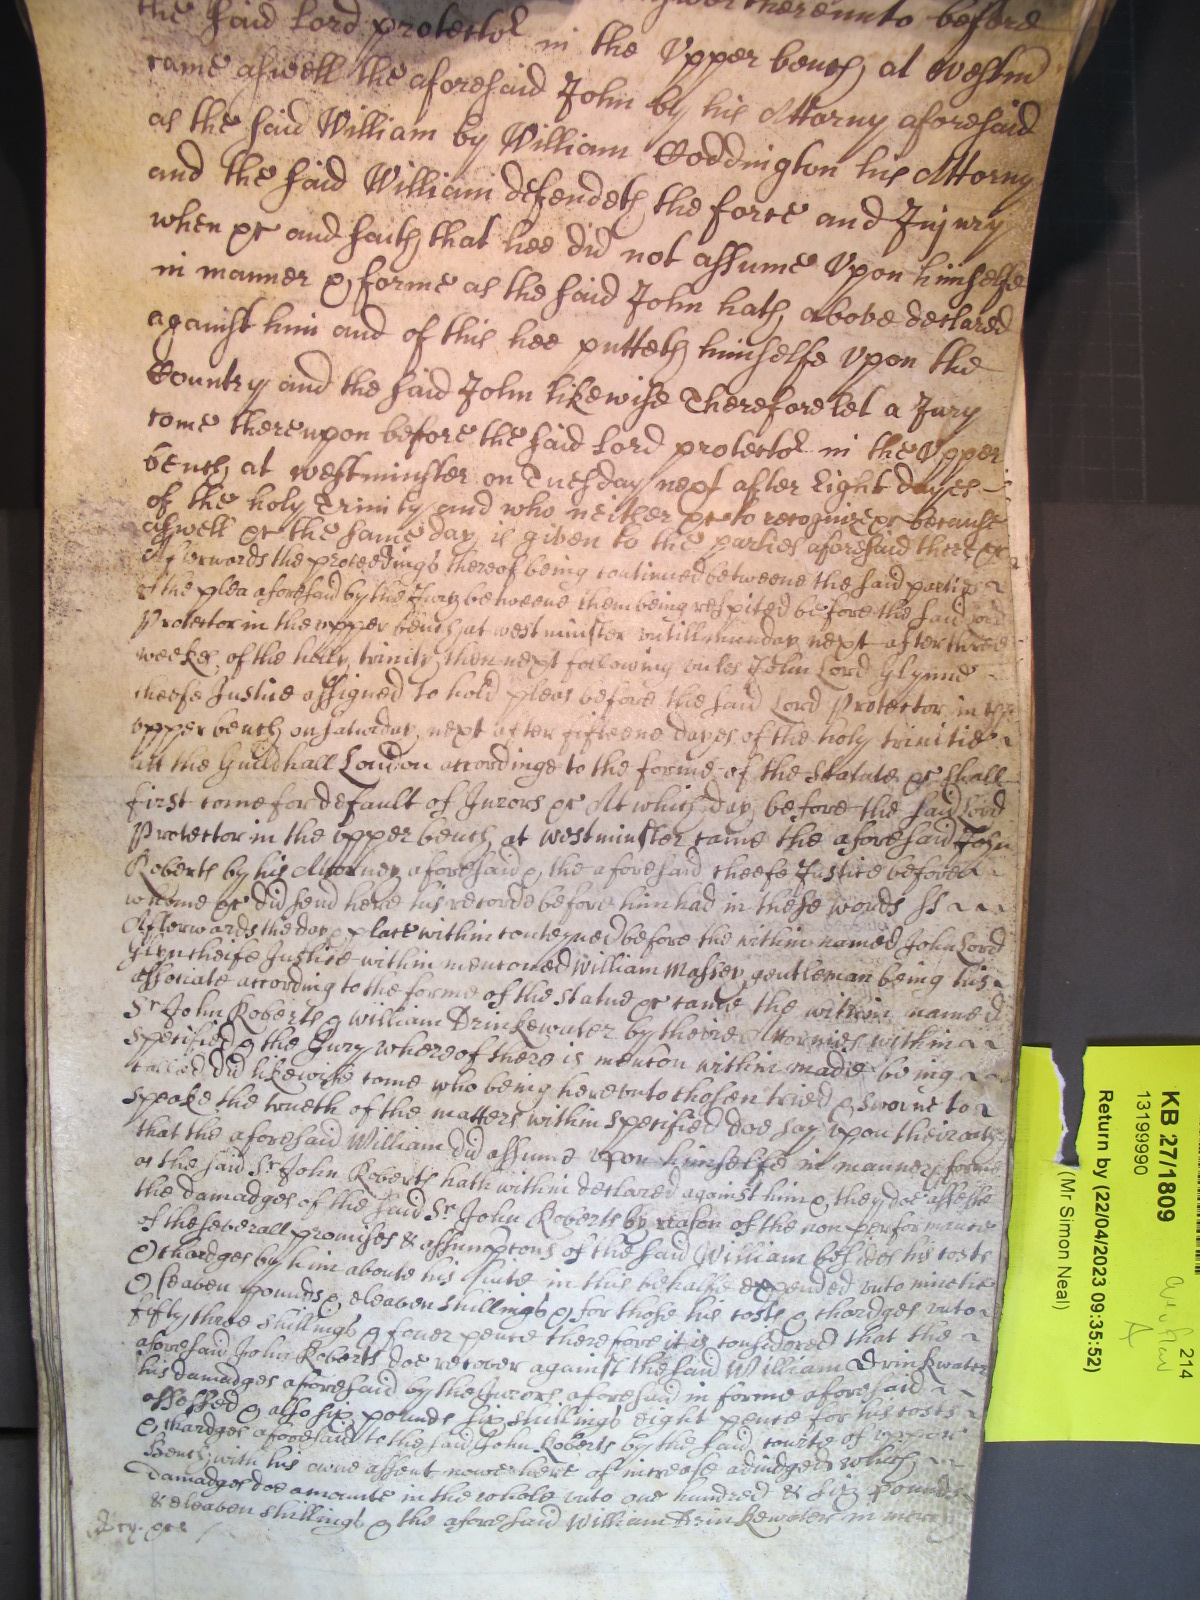 the said Lord protector thereunto before
the said Lord protector in the Upper bench at Westmr
came aswell the aforesaid John by his Attorny aforesaid
as the said William by William Coddington his Attorny
and the said William defendeth the force and Injury
when &c and saith that hee did not assume Upon himselfe
in manner & forme as the said John hath above declared
against him and of this hee putteth himselfe Upon the
Country and the said John likewise Therefore let a Jury
come thereupon before the said Lord protector in the Upper
bench at westminster on Tuesday next after Eight dayes
of the holy Trinity and who neither &c to recognize &c because
aswell &c the same day is given to the parties aforesaid there &c
Afterwards the proceedings thereof being continued betweene the said parties
of the plea aforesaid by the Jury betweene them being respited before the said Lord
Protector in the upper bench at westminster untill munday next after three
weekes of the holy trinity then next following unles John Lord Glynne
cheefe Justice assigned to hold pleas before the said Lord Protector in the
upper bench on saturday next after fifteene dayes of the holy trinitie
att the Guildhall London accordinge to the forme of the statute &c shall
first come for default of Jurors &c At which day before the said Lord
Protector in the upper bench at westminster came the aforesaid John
Roberts by his Attorney aforesaid & the aforesaid cheefe Justice before
whome &c did send here his recorde before him had in these words ss
Afterwards the day & place within conteyned before the within named John Lord
Glyn cheife Justice within mencioned William Massey gentleman being his
associate according to the forme of the statue &c came the within named
Sr John Roberts & William Drinkewater by theire Attornies within
specified & the Jury whereof there is mencon within made being
called did likewise come who being hereunto chosen tried & sworne to
speake the trueth of the matters within specified doe say upon their oath
that the aforesaid William did assume upon himselfe in manner & forme
as the said Sr John Roberts hath within declared against him & they doe assesse
the damadges of the said Sr John Roberts by reason of the non performance
of the severall promises & assumptons of the said William besides his costs
& chardges by him aboute his suite in this behalfe expended unto ninetie
& seaven pounds & eleaven shillings & for those his costs & chardges unto
fifty three shillings & fower pence therefore it is considered that the
aforesaid John Roberts doe recover against the said William Drinkwater
his damadges aforesaid by the Jurors aforesaid in forme aforesaid
assessed & also six pounds six shillings eight pence for his costs
& chardges aforesaid to the said John Roberts by the said courte of upper
Bench with his owne assent nowe here of increase adiudged which
Damadges doe amounte in the whole unto one hundred & six pounds
& eleaven shillings & the aforesaid William Drinkewater in mercy
KB 27/1809
13199990
Return by (22/04/2023 09:35:52)
(Mr Simon Neal)
214